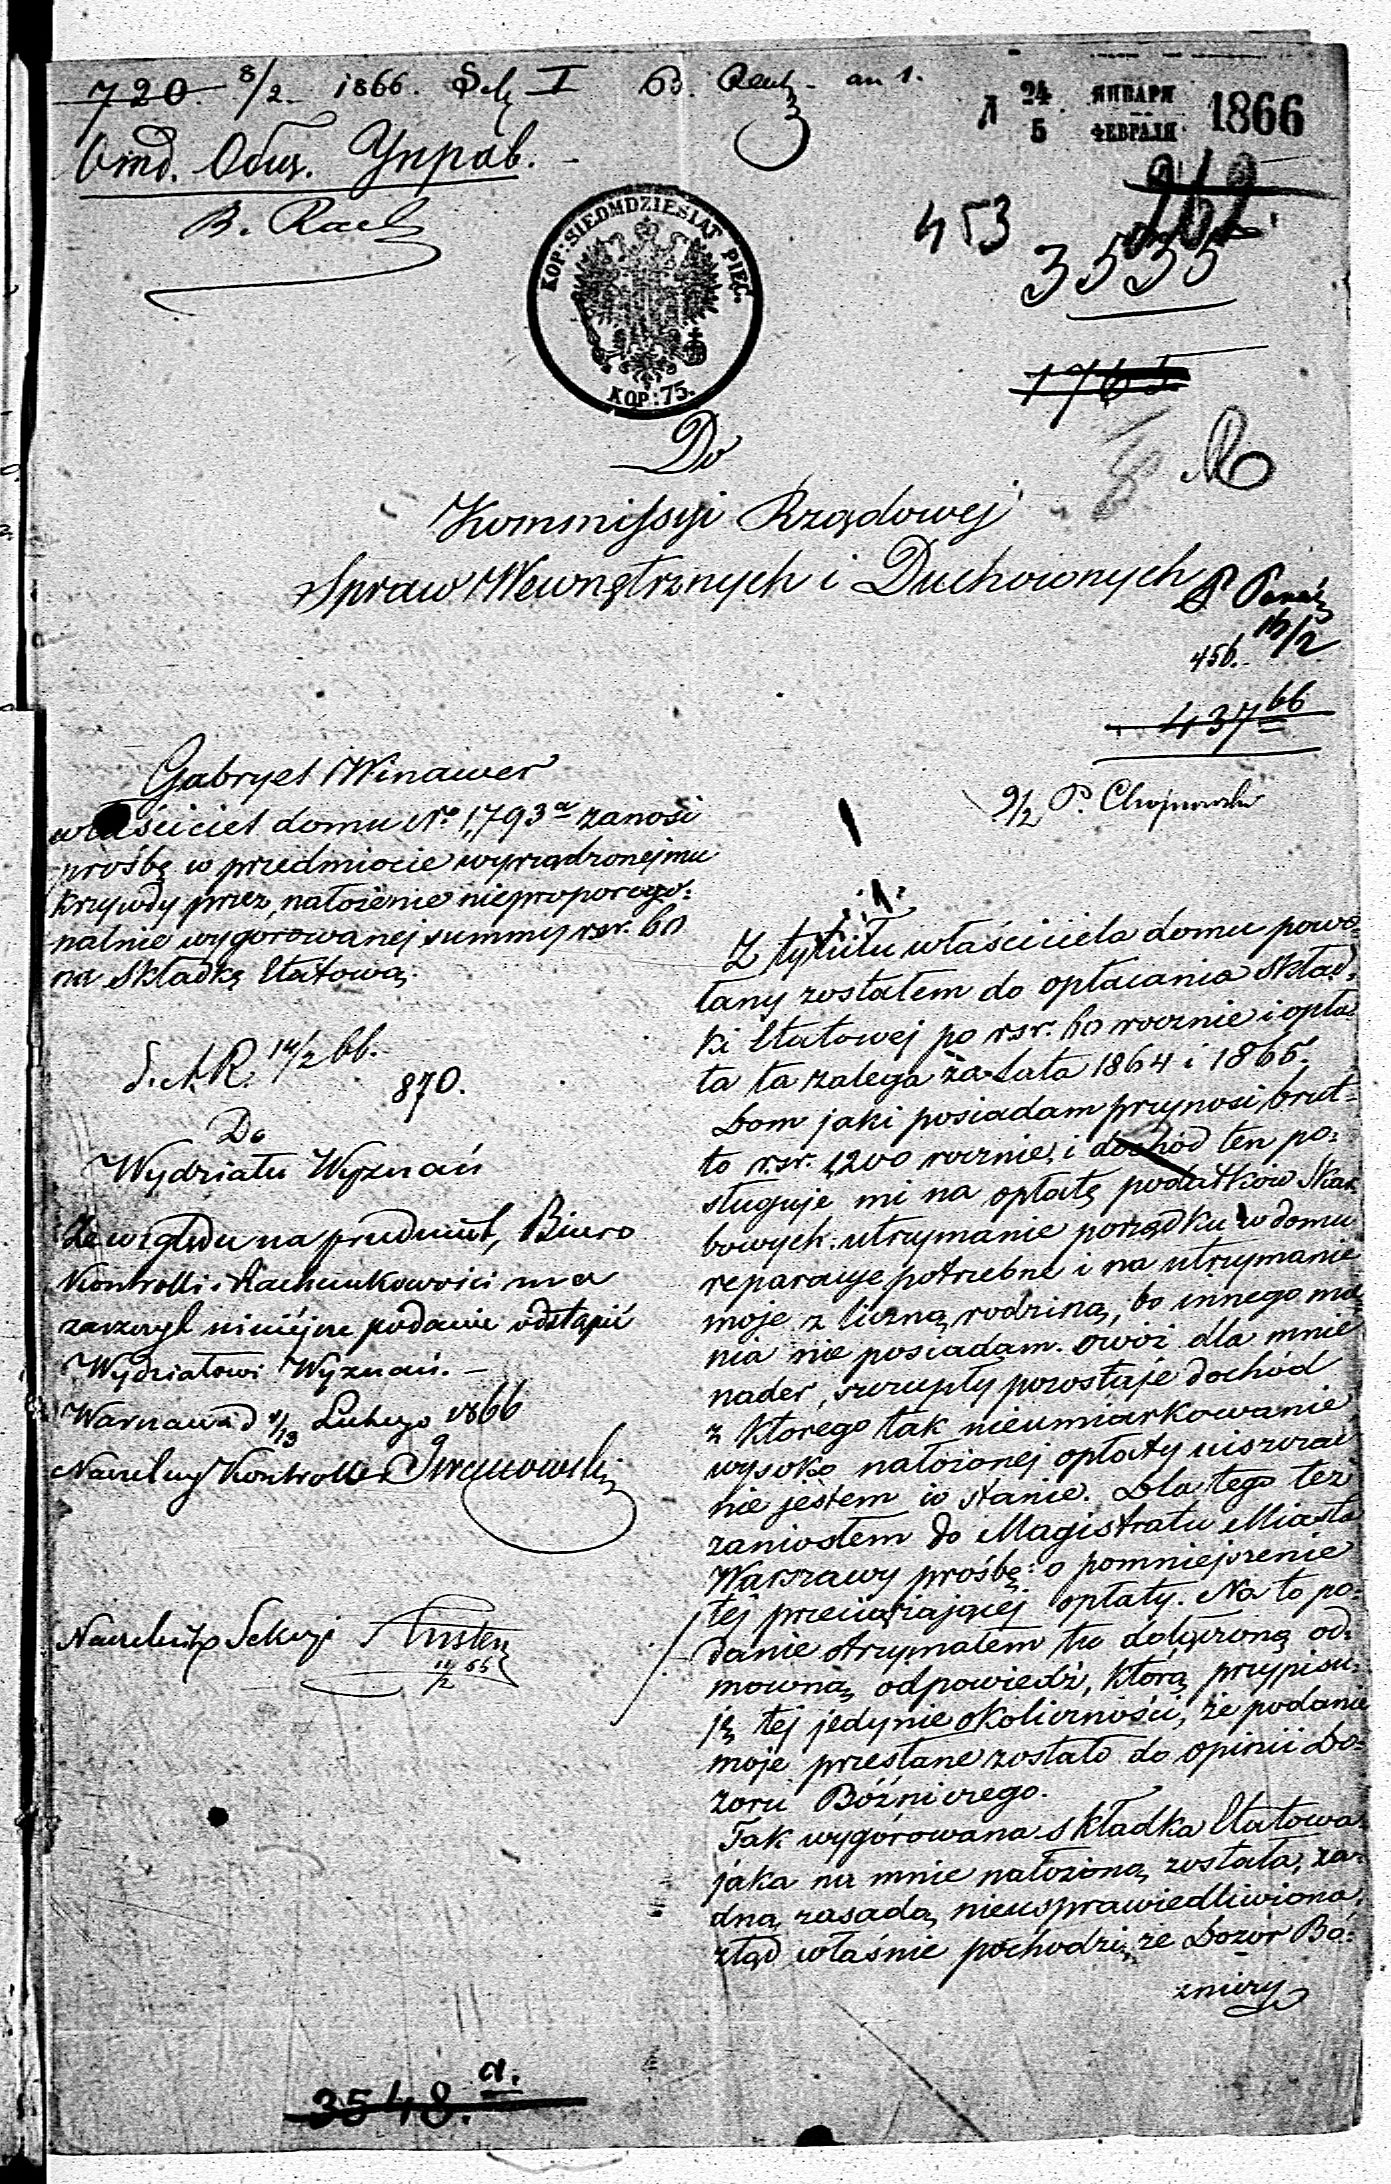 720. 8/2 1866. I
24 ЯНВАРЯ
5 ФЕВРАЛЯ 1866
Отд. Общ. Управ.
KOP: SIEDMDZIESIĄT PIĘĆ.
KOP: 75.
453
3535
1765
Do
Kommissyi Rządowej
Spraw Wewnętrznych i Duchownych
456. 16/2
437 66
9/2 P. Chojnowski
Gabryel Winawer
właściciel domu No. 1,793 a zanosi
prośbę w przedmiocie wyrządzonej mu
krzywdy przez nałożenie nieproporcyo-
nalnie wygórowanej summy rsr. 60
na składkę Etatową.
14/2 66.
870.
Do
Wydziału Wyznań
Ze względu na przedmiot, Biuro
Kontrolli i Rachunkowości ma
zaszczyt niniejsze podanie odstąpić
Wydziałowi Wyznań. —
Warszawa d. 1/13 Lutego 1866
Naczelny Kontroller
Naczelnik Sekcyi
Z tytułu właściciela domu powo-
łany zostałem do opłacania Skład-
ki Etatowej po rsr. 60 rocznie i opła-
ta ta zalega za lata 1864 i 1865.
Dom jaki posiadam przynosi brut-
to rsr. 1,200 rocznie, i dochód ten po-
sługuje mi na opłatę podatków Skar-
bowych. utrzymanie porządku w domu
reparacye potrzebne i na utrzymanie
moje z liczną rodziną, bo innego mie-
nia nie posiadam. owóż dla mnie
nader szczupły pozostaje dochód
z którego tak nieumiarkowanie
wysoko nałożonej opłaty uiszczać
nie jestem w stanie. Dla tego też
zaniosłem do Magistratu Miasta
Warszawy prośbę o pomniejszenie
tej przeciążającej opłaty. Na to po-
danie otrzymałem tu dołączoną od-
mowną odpowiedź, którą przypisu-
ję tej jedynie okoliczności, że podanie
moje przesłane zostało do opinii Do-
zoru Bóźniczego.
Tak wygórowana składka Etatowa
jaka na mnie nałożoną została, ża-
dną zasadą nieusprawiedliwiona,
ztąd właśnie pochodzi, że Dozor Bó-
źniczy
3548. a.